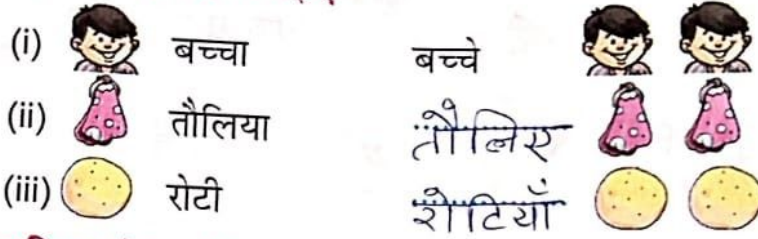 (i) बच्चा बच्चे
(ii) तौलिया तौलिए
(iii) रोटी रोटियाँ